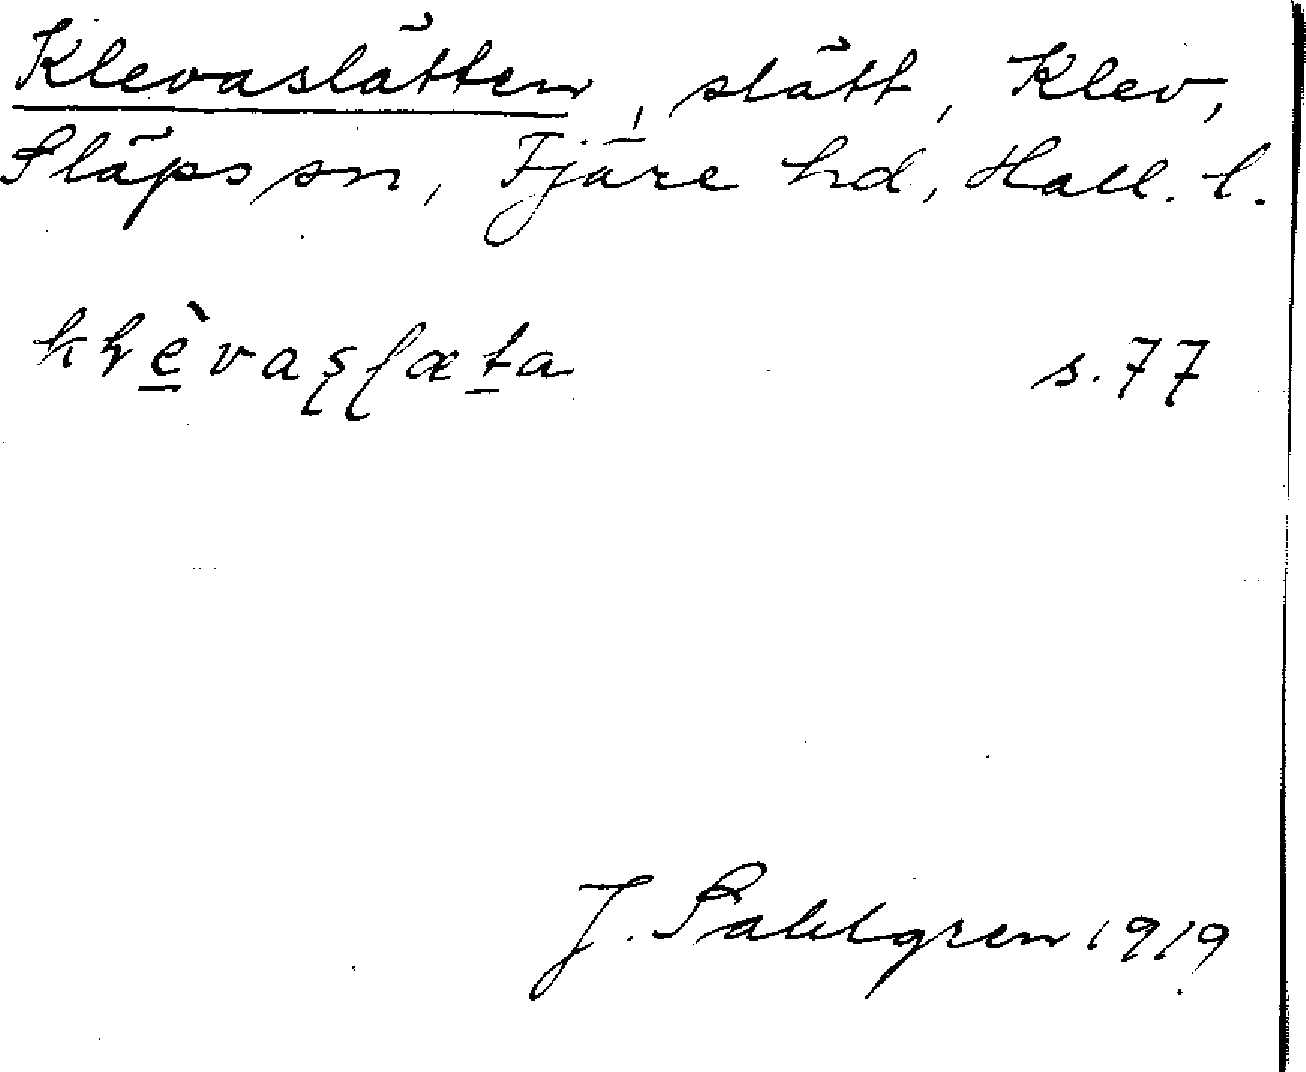 Klevaslätten, slätt, Klev,
Släps sn, Fjäre hd, Hall. l.
kɽè̠vaʂɭæt̠a s. 77
J. Sahlgren 1919